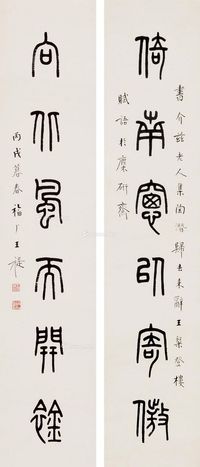 書介茲老人集陶潛歸去來辭王粲登樓
倚南窗以寄傲
賦語於麋研齋
向北風而開襟
丙戌暮春福厂王禔